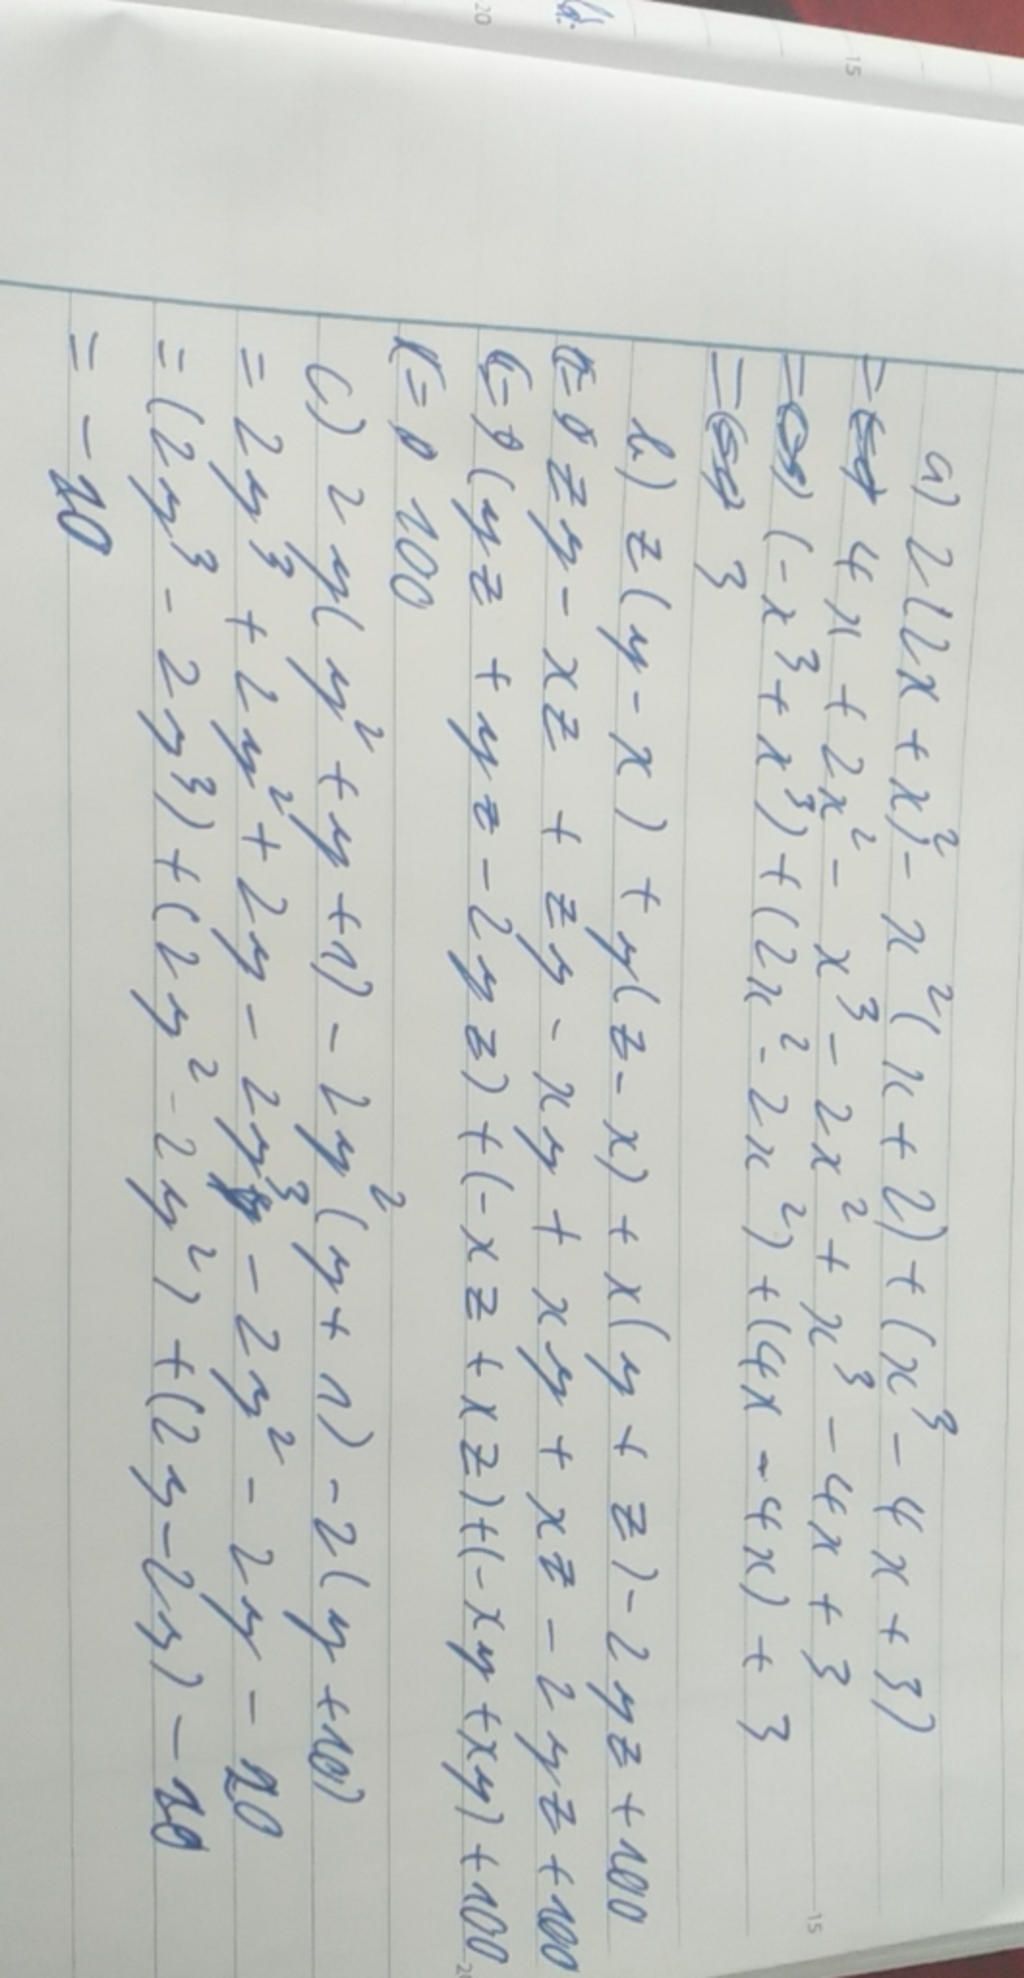 a) 2(2x + x²) - x²(x + 2) + (x³ - 4x + 3)
= 4x + 2x² - x³ - 2x² + x³ - 4x + 3
= (-x³ + x³) + (2x² - 2x²) + (4x - 4x) + 3
= 3
b) z(y - x) + y(z - x) + x(y + z) - 2yz + 100
= zy - xz + zy - xy + xy + xz - 2yz + 100
= (yz + yz - 2yz) + (-xz + xz) + (-xy + xy) + 100
= 100
c) 2y(y² + y + 1) - 2y²(y + 1) - 2(y + 10)
= 2y³ + 2y² + 2y - 2y³ - 2y² - 2y - 20
= (2y³ - 2y³) + (2y² - 2y²) + (2y - 2y) - 20
= - 20
15
20
15